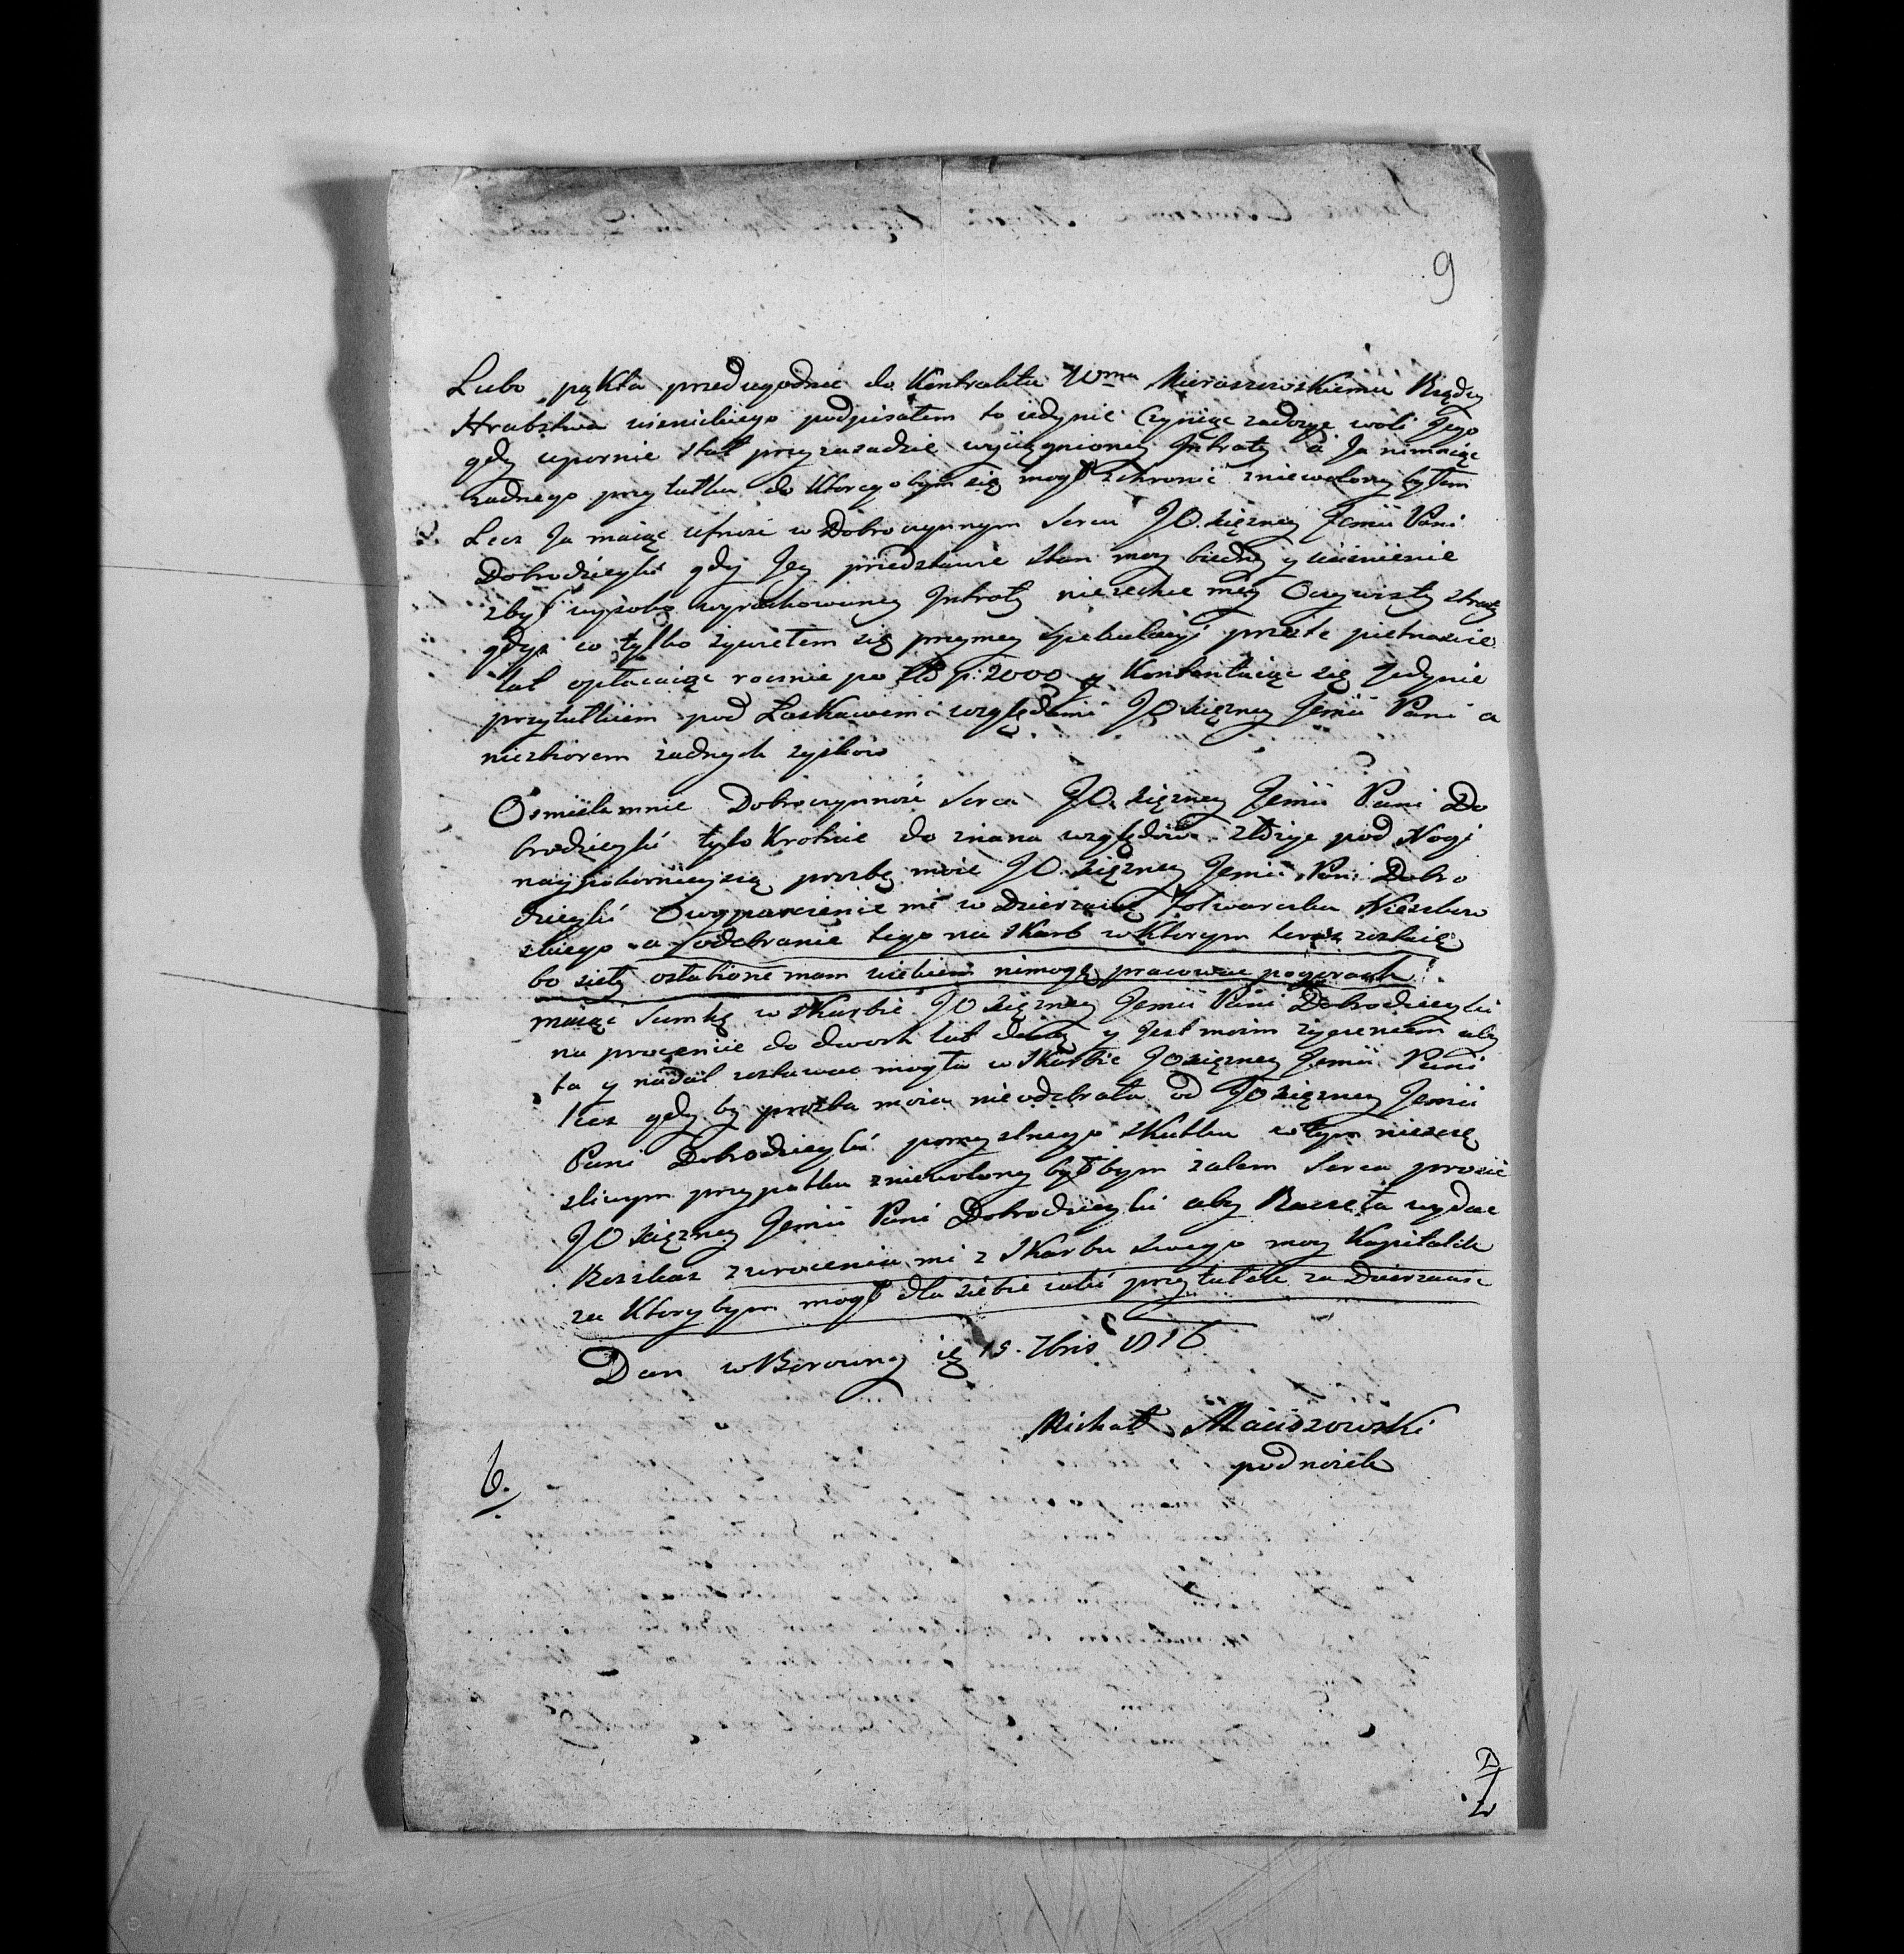 9
Lubo pąkta przedugodne do Kontraktu Wmu Mieroszewskiemu Rządcy
Hrabstwa wisnickiego podpisałem to iedynie Czyniąc zadosyc woli Jego
gdy upornie stał przy zasadzie wyciągnioney Jntraty a Ja nimaiąc
zadnego przytułku do Ktorego bym się mogł schronić zniewolony byłem
Lecz Ja maiąc ufność w Dobroczynnym Sercu JO. xiężney Jemci Pani
Dobrodzieyki gdy Jey przedstawie stan moy biedny y uciemienie
zbyt wysoko wyrachowaney Jntraty niezechce mey Oczywisty straty
gdyz co tylko zywiełem się przy mey spekulacyi przez te pietnascie
lat opłacaiąc rocznie po Zło p: 2000 y Kontentuiąc się Jedynie
przytułkiem pod Łaskawemi względami JO xiężney Jemci Pani a
niezbiorem żadnych zyskow
Osmiela mnie Dobroczynność Serca JO. xiężney Jemci Pani Do
brodzieyki tylo Krotnie do znana względow złożyc pod Nogi
naypokornieyszą prozbę moie JO. xiężney Jemci Pani Dobro
dzieyki O wypuszczenie mi w Dzierzawę folwarczku
skiego a odebranie tego na skarb w Ktorym teraz zostaię
bo siełę osłabione mam wiekiem nimogę pracowac po gorach
maiąc Sumkę w skarbie JO xiężney Jemci Pani Dobrodzieyki
na procencie do dwoch lat y Jest moim zyczeniem aby
ta y nadal zostawac mogła w Skarbie JO xiężney Jemci Pani
lecz gdy by prozba moia nie odebrała od JO xiężney Jemci
Pani Dobrodzieyki pomyslnego skutku w tym niesczę
sliwym przypatku zniewolony był bym zalem Serca prosić
JO xiężney Jemci Pani Dobrodzieyki aby Raczeła wydac
Rozkaz zwrocenia mi z Skarbu Swego moy Kapitalik
za Ktory bym mogł dla siebie iakiś przytułek za Dzierzawić
Dan w Borowny 15. 7bris 1816
Michał Maiiszowski
podnozek
6.